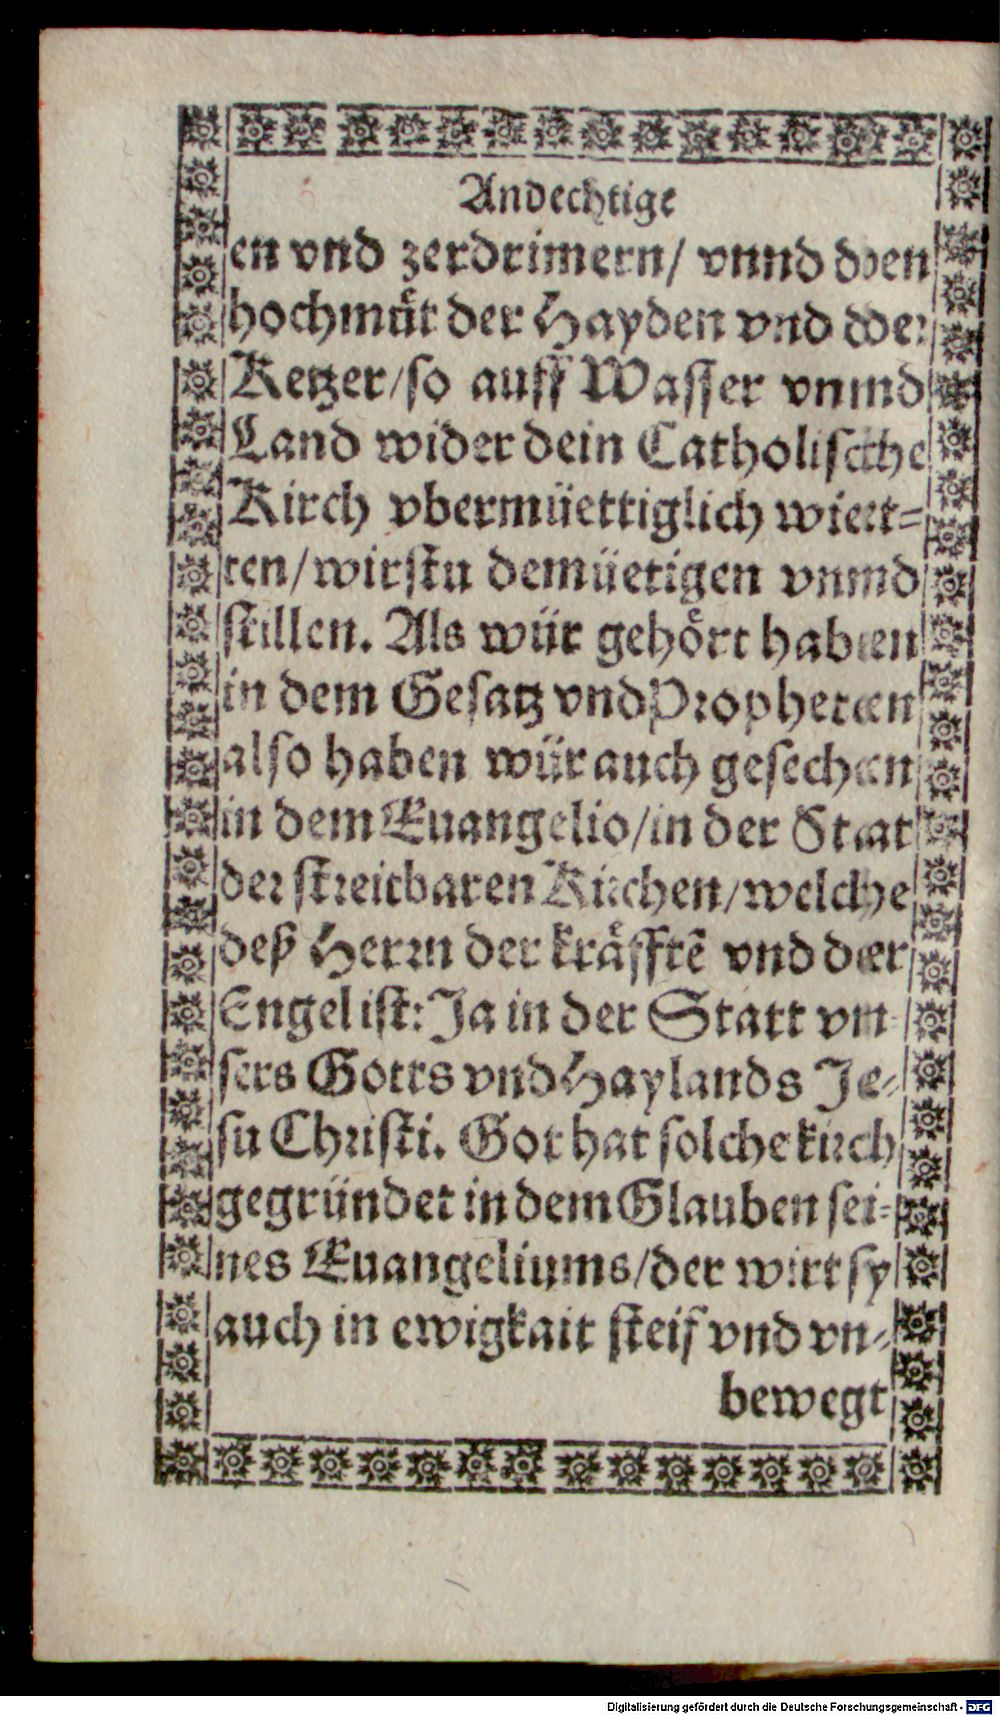 Andechtige
en vnd zerdrimern/ vnnd den
hochmůt der Hayden vnd der
Ketzer/so auff Wasser vnnd
Land wider dein Catholische
Kirch vbermüettiglich wiert-
ten/wirstu demüetigen vnnd
stillen. Als wür gehört haben
in dem Gesatz vnd Propheten
also haben wür auch gesechen
in dem Euangelio/in der Stat
der streitbaren Kirchen/welche
deß Herrn der kräfftẽ vnd der
Engel ist: Ja in der Statt vn-
sers Gotts vnd Haylands Je-
su Christi. Got hat solche kirch
gegründet in dem Glauben sei-
nes Euangeliums/der wirt sy
auch in ewigkait steif vnd vn-
bewegt
Digitalisierung gefördert durch die Deutsche Forschungsgemeinschaft - DFG